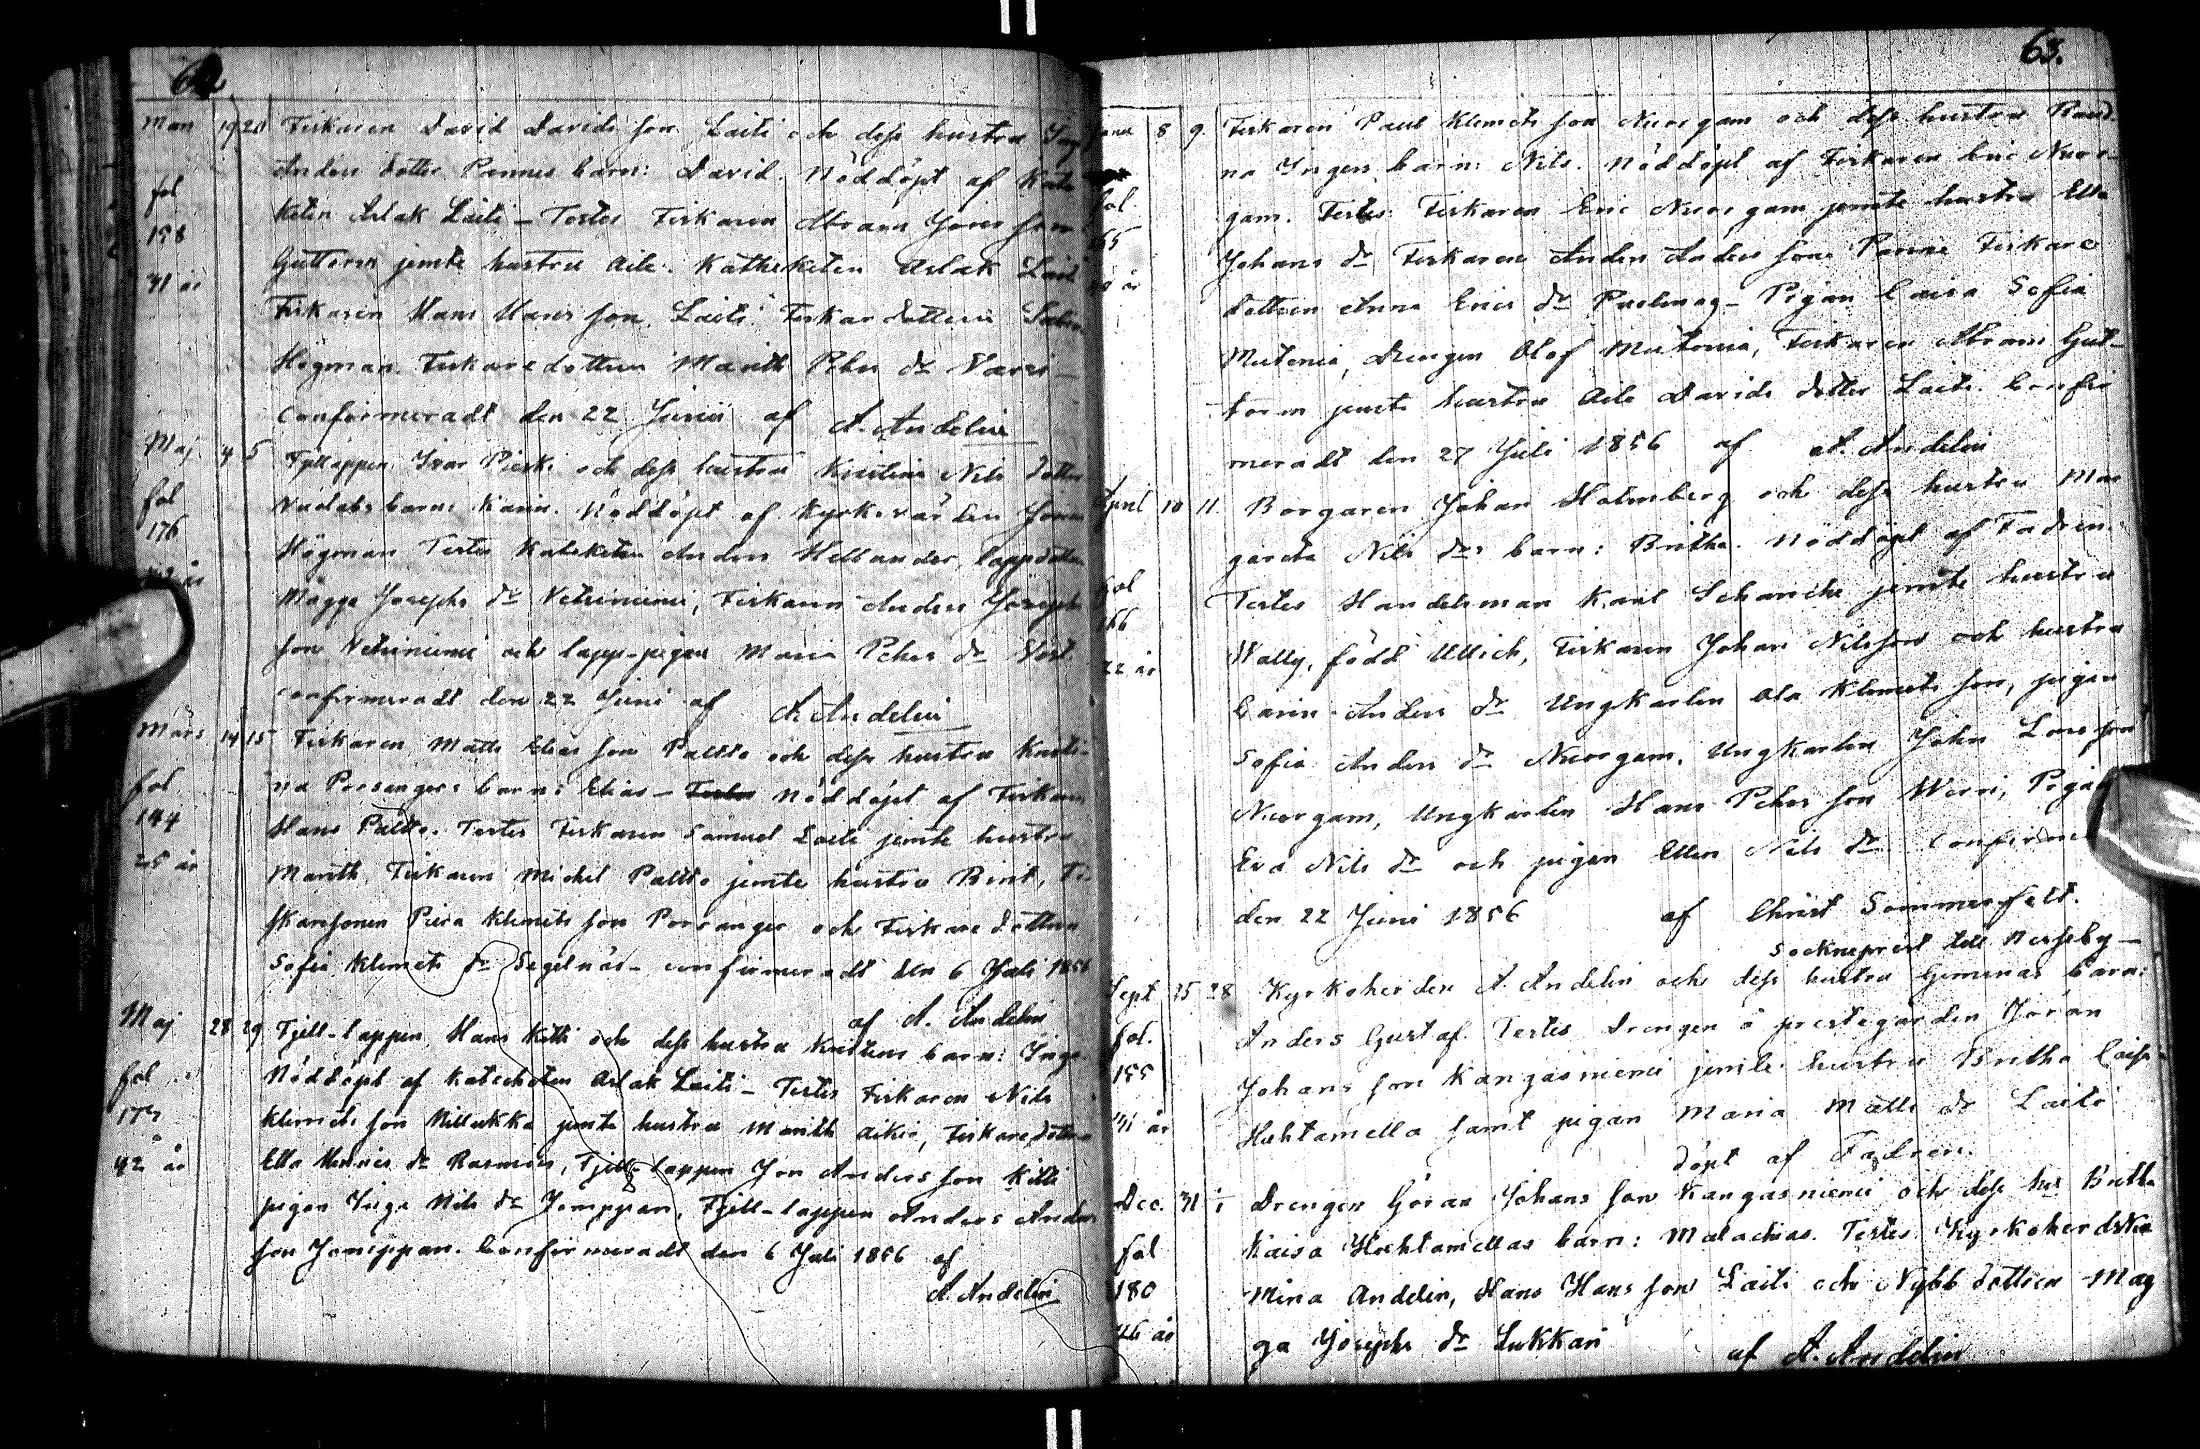 62
Mars 19 20 Fiskaren David Davids son Laiti och dess hustru
Anders dotter Pannes barn: David. Nöddöpt af Kate
keten Aslak Laiti – Testes Fiskaren Abram Jons son
fol
158
Guttorm jemte hustru Aile. Katheketen Aslak Laiti
31 år
Fiskaren Hans Hans son Laiti Fiskardottern
Högman Fiskaredottern Marith Pehrs dr
Confirmeradt den 22 Junii af A. Andelin
Maj 4 5 Fjellappen Ivar Pieski och dess hustru Kristina Nils dotter
fol
176
barn: Karin. Nöddöpt af Kyrkovärden
Högman Testes Kateketen Anders Hellander, lappdotter
Magga Josephs dr Vetsiniemi, Fiskaren Anders Josephs
son Vetsiniemi och lapp-pigan Maria Pehrs dr
confirmeradt den 22 Juni af A. Andelin
Mars 14 15 Fiskaren Matts Elias son Paltto och dess hustru Kristi-
fol
144
25 år
na Porsangers barn: Elias – Testes nöddöpt af Fiskaren
Hans Paltto. Testes Fiskaren Samuel Laiti jemte hustru
Marith, Fiskaren Michel Paltto jemte hustru Birit, Fi-
skarsonen Piera Klemets son Porsanger och Fiskare dottern
Sofia Klemets dr Segelnäs – confirmeradt den 6 Juli 1856
af A. Andelin
Maj 28 29 Fjell-lappen Hans Kitti och dess hustru Kristens barn: Inga
fol
173
42 år
Nöddöpt af Katecheten Aslak Laiti – Testes Fiskaren Nils
Klemets son Nillukka jemte hustru Marith Aikio, Fiskaredottern
Ella dr Rasmus, Fjell-lappen Jon Anders son Kitti
pigan Inga Nils dr Jomppan, Fjell-lappen Anders Anders
son Jomppan. Confirmeradt den 6 Juli 1856 af
A. Andelin
63.
8 9 Fiskaren Paul Klemets son Nuorgam och dess hustru Rand-
na Ingers barn: Nils. Nöddöpt af Fiskaren Eric Nuor-
gam. Testes: Fiskaren Eric Nuorgam jemte hustru Ella
Johans dr Fiskaren Anders Anders son Panne Fiskare
dottren Anna Erics dr Puolmag – Pigan Caisa Sofia
Mutenia, Drengen Olof Mutenia, Fiskaren Abram Gut-
torm jemte hustru Aile Davids dotter Laiti. Confir
meradt den 27 Juli 1856 af A. Andelin
April 10 11. Borgaren Johan Holmberg och dess hustru Mar
fol
166
22 år
gareta Nils drs barn: Britha. Nöddöpt af Fadren.
Testes Handelsman Karl Schanche jemte hustru
Wally, född Ullich, Fiskaren Johan Nilsson och hustru
Carin Anders dr Ungkarlen Ola Klemets son, pigan
Sofia Anders dr Nuorgam, Ungkarlen John Lons son
Nuorgam, Ungkarlen Hans Pehrs son Werri, Pigan
Eva Nils dr och pigan Ellen Nils dr Confirme
den 22 Juni 1856 af Christ Sommerfelt.
Sockneprest till Nessebÿ –
Sept 25 28 Kyrkoherden A. Andelin och dess hustru Geminas barn:
fol.
155
41 år
Anders Gustaf. Testes Drengen å prestegården Göran
Johans son Kangasniemi jemte hustru Britha Caisa
Huhtamella samt pigan Maria Matts dr Laiti
döpt af Fadren.
Dec. 31 Drengen Göran Johans son Kangasniemi och dess hu Britha
fol
180
46 år
Kaisa Huhtamellas barn: Malachias. Testes Kyrkoherdskan
Mina Andelin, Hans Hans son Laiti och Nybb dottren Mag
ga Josephs dr Lukkari
af A. Andelin